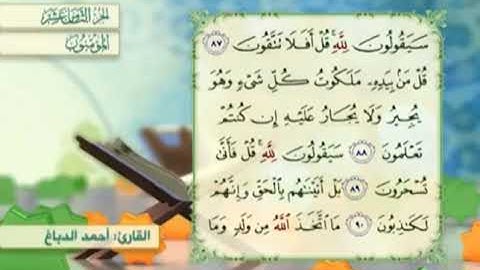 الجزء الثامن عشر
المؤمنون
سَيَقُولُونَ لِلَّهِ ۚ قُلْ أَفَلَا تَتَّقُونَ ٨٧
قُلْ مَنۢ بِيَدِهِۦ مَلَكُوتُ كُلِّ شَىْءٍ وَهُوَ
يُجِيرُ وَلَا يُجَارُ عَلَيْهِ إِن كُنتُمْ
تَعْلَمُونَ ٨٨ سَيَقُولُونَ لِلَّهِ ۚ قُلْ فَأَنَّىٰ
تُسْحَرُونَ ٨٩ بَلْ أَتَيْنَـٰهُم بِٱلْحَقِّ وَإِنَّهُمْ
لَكَـٰذِبُونَ ٩٠ مَا ٱتَّخَذَ ٱللَّهُ مِن وَلَدٍ وَمَا
القارئ: أحمد الدباغ